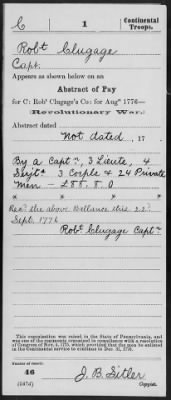 C | 1 | Continental Troops.
Robt Clugage
Capt.
Appears as shown below on an
Abstract of Pay
for C: Robt Clugage's Co: for Augt 1776—
(Revolutionary War.)
Abstract dated
Not dated, 17 .
By a Captn, 3 Lieuts, 4
Serjts 3 Corpls & 24 Private
Men — £88. 8. 0
Recd the above Ballance this 22d
Septr. 1776
Robt Clugage Captn
This organization was raised in the State of Pennsylvania, and
was one of the regiments continued in compliance with a resolution
of Congress of Nov. 4, 1775, which provided that the men be enlisted
in the Continental service to continue to Dec. 31, 1776.
Number of record:
46
J. B. Sitler
Copyist.